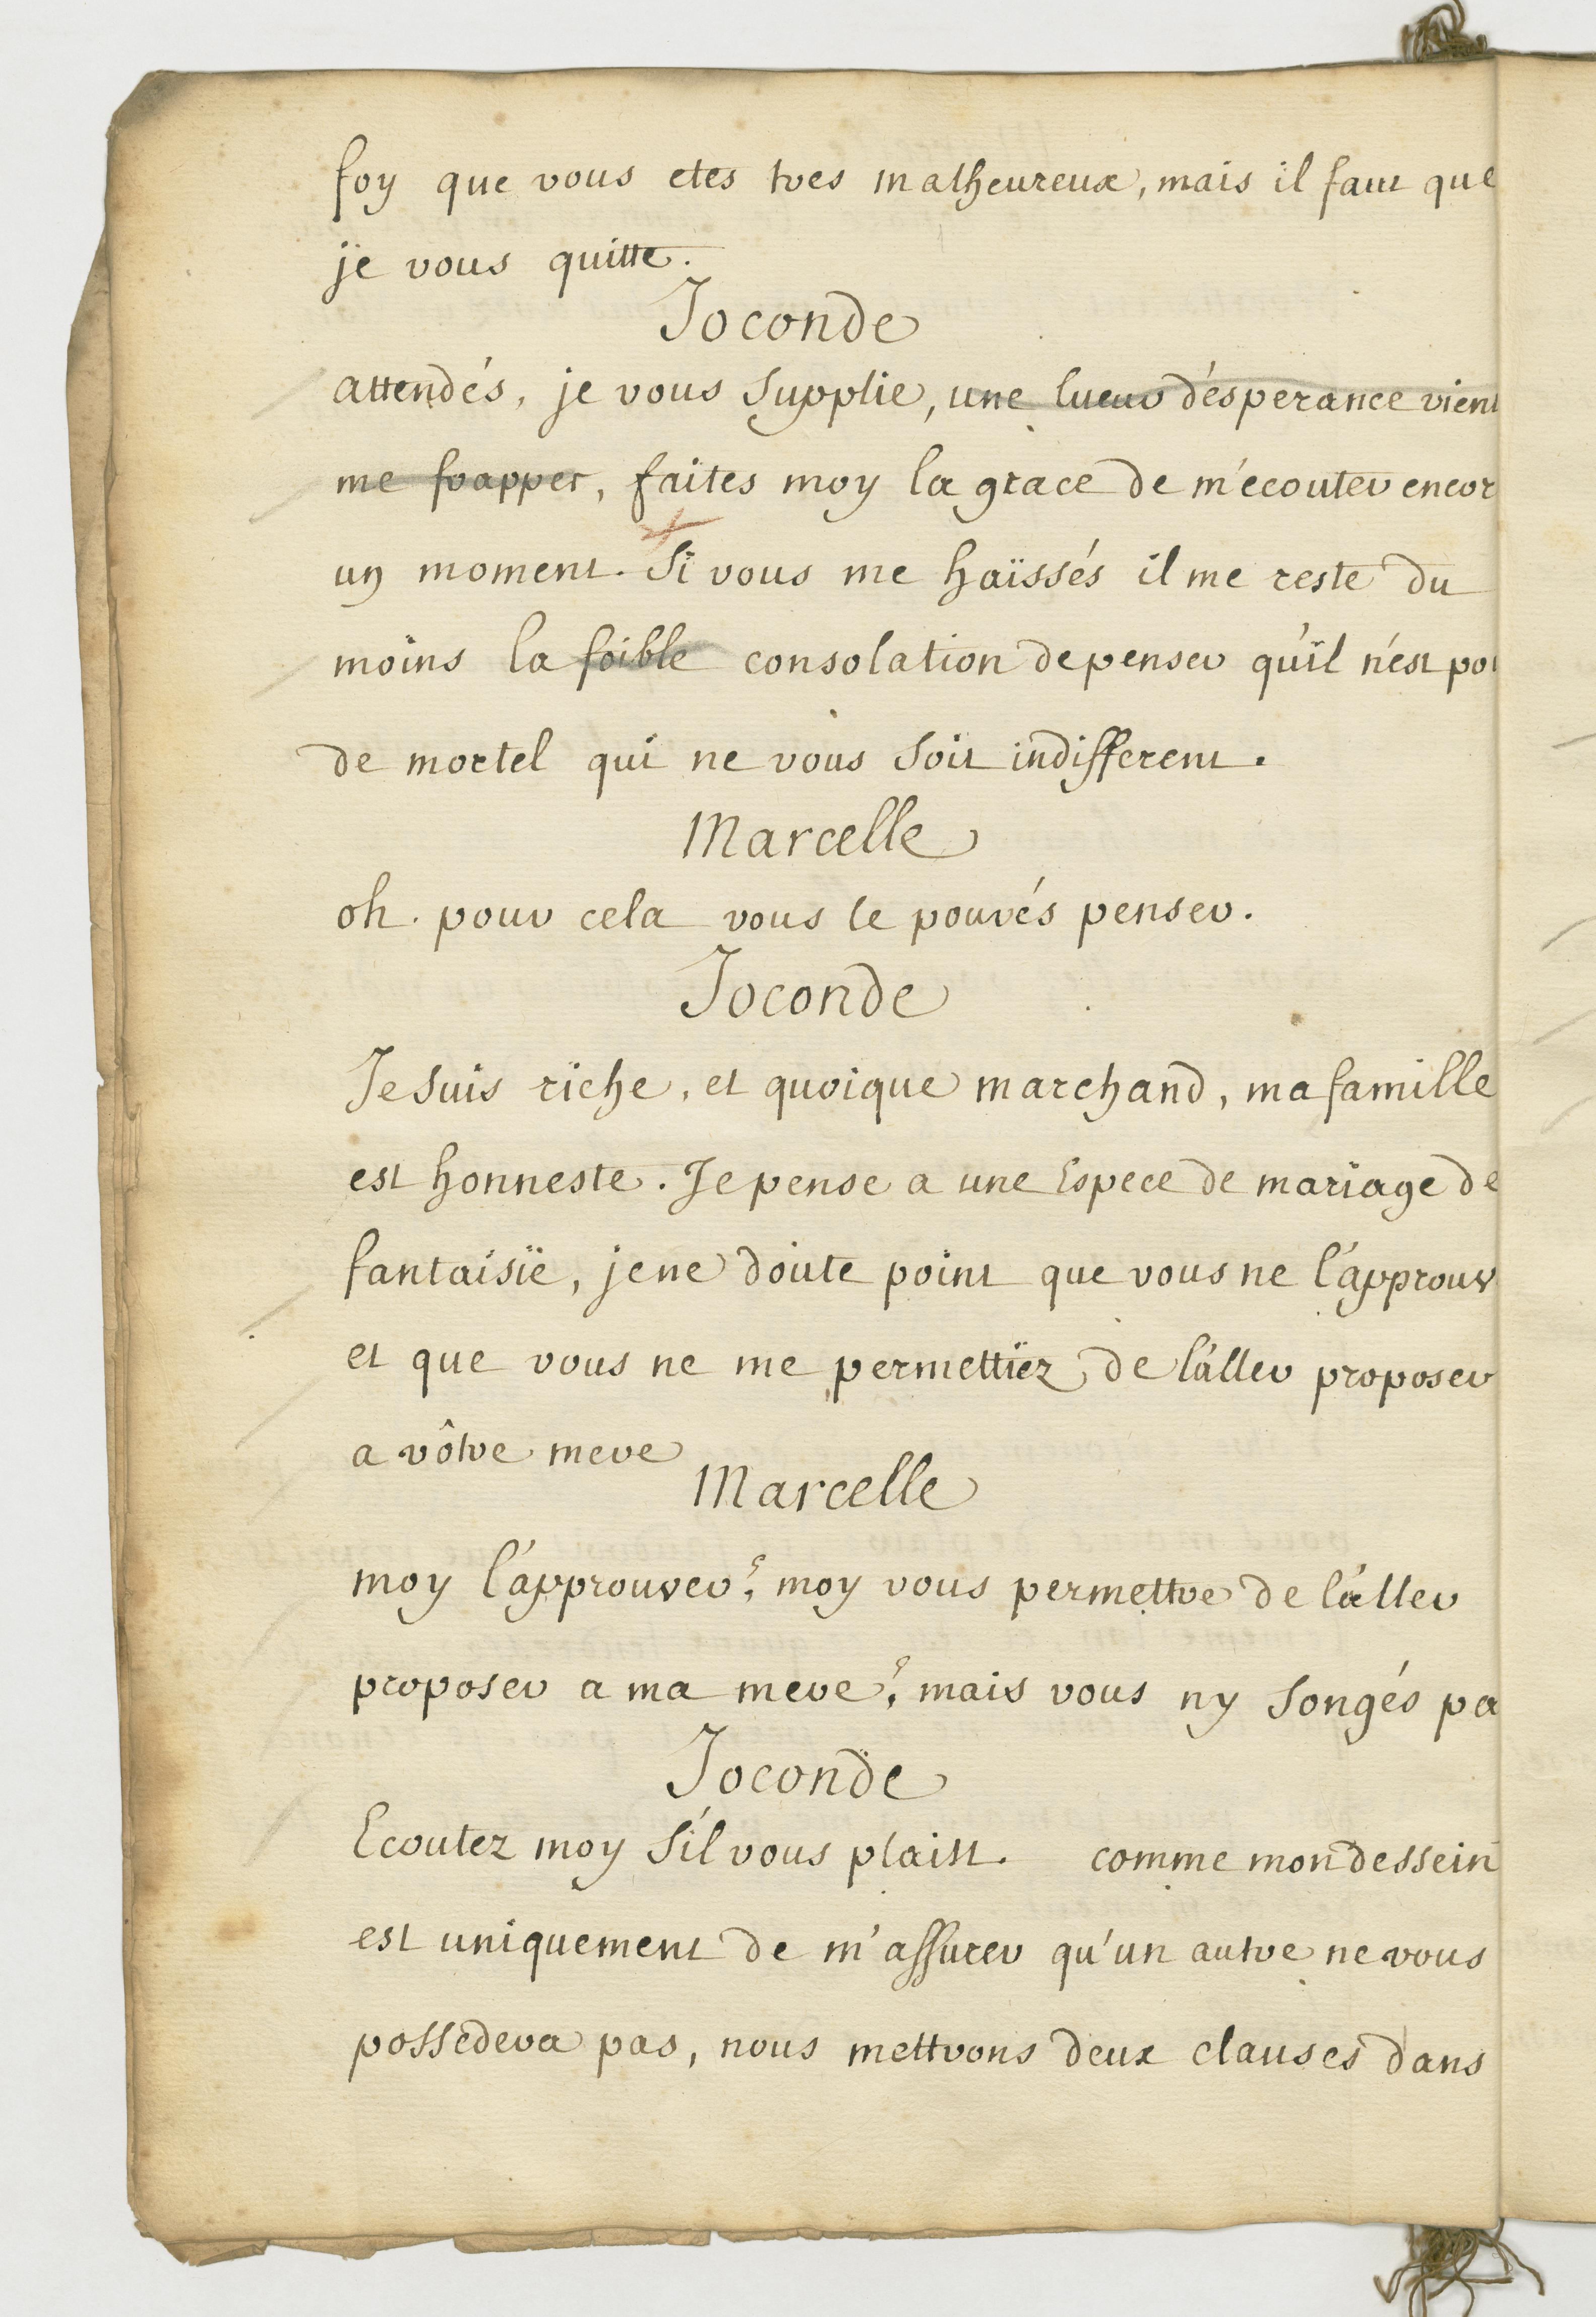 foy que vous etes tres malheureux, mais il faut que
je vous quitte.
Joconde
attendés, je vous supplie, une lueur d'ésperance vient
me frapper, faites moy la grace de m'écouter encor
un moment. Si vous me haïssés il me reste du
moins la foible consolation de penser qu'il n'ést poi
de mortel qui ne vous soit indifferent.
Marcelle
oh. pour cela vous le pouvés penser.
Joconde
Je suis riche, et quoique marchand, ma famille
est honneste. Je pense a une Espece de mariage de
fantaisïe, je ne doute point que vous ne l'approuv
et que vous ne me permettïez de l'aller proposer
a vôtre mere
Marcelle
moy l'approuver? moy vous permettre de l'aller
proposer a ma mere? mais vous ny songés pa
Joconde
Ecoutez moy s'il vous plaist. comme mon dessein
est uniquement de m'assurer qu'un autre ne vous
possedera pas, nous mettrons deux clauses dans